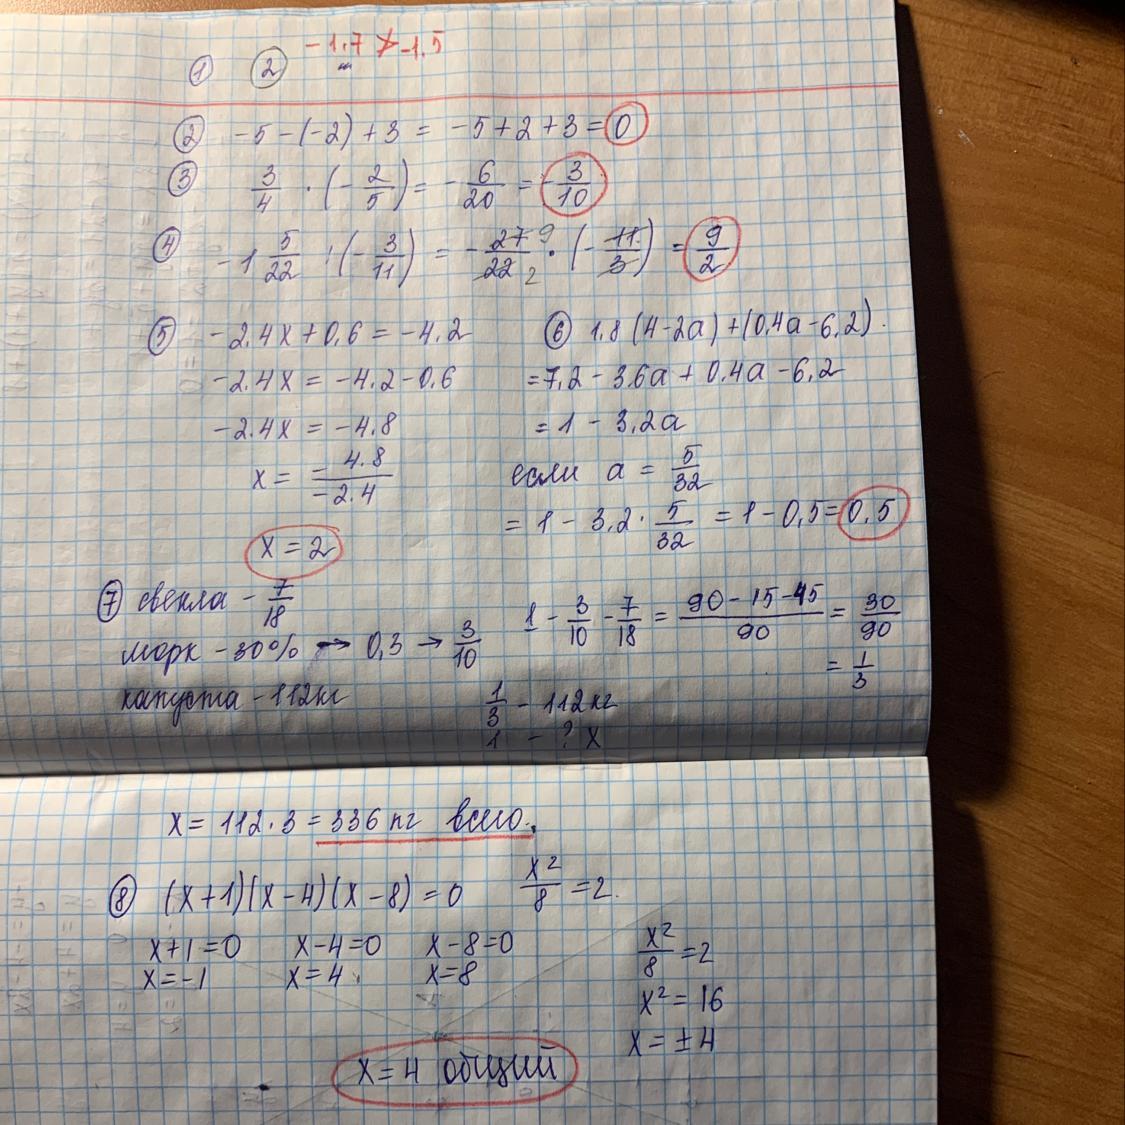 -1.7 > -1.5
① ②
② -5-(-2)+3 = -5+2+3=0
③ 3/4 · (-2/5) = -6/20 = -3/10
④ -1 5/22 : (-3/11) = -27/22 · (-11/3) = 9/2
9
2
⑤ -2.4x+0,6=-4.2
-2.4x = -4.2-0.6
-2.4x = -4.8
x = -4.8/-2.4
x=2
⑥ 1.8(4-2a)+(0,4a-6,2).
=7,2-3.6a+0.4a-6,2
=1-3,2a
если a = 5/32
= 1-3,2 · 5/32 = 1-0,5=0,5
⑦ свекла - 7/18
морк -30% → 0,3 → 3/10
капуста -112кг
1 - 3/10 - 7/18 = 90-15-45/90 = 30/90
= 1/3
1/3 - 112кг
1 - ? x
x= 112·3 = 336кг всего.
⑧ (x+1)(x-4)(x-8)=0 x²/8 =2.
x+1=0 x-4=0 x-8=0
x=-1 x=4 x=8
x²/8 =2
x²=16
x=±4
x=4 общий